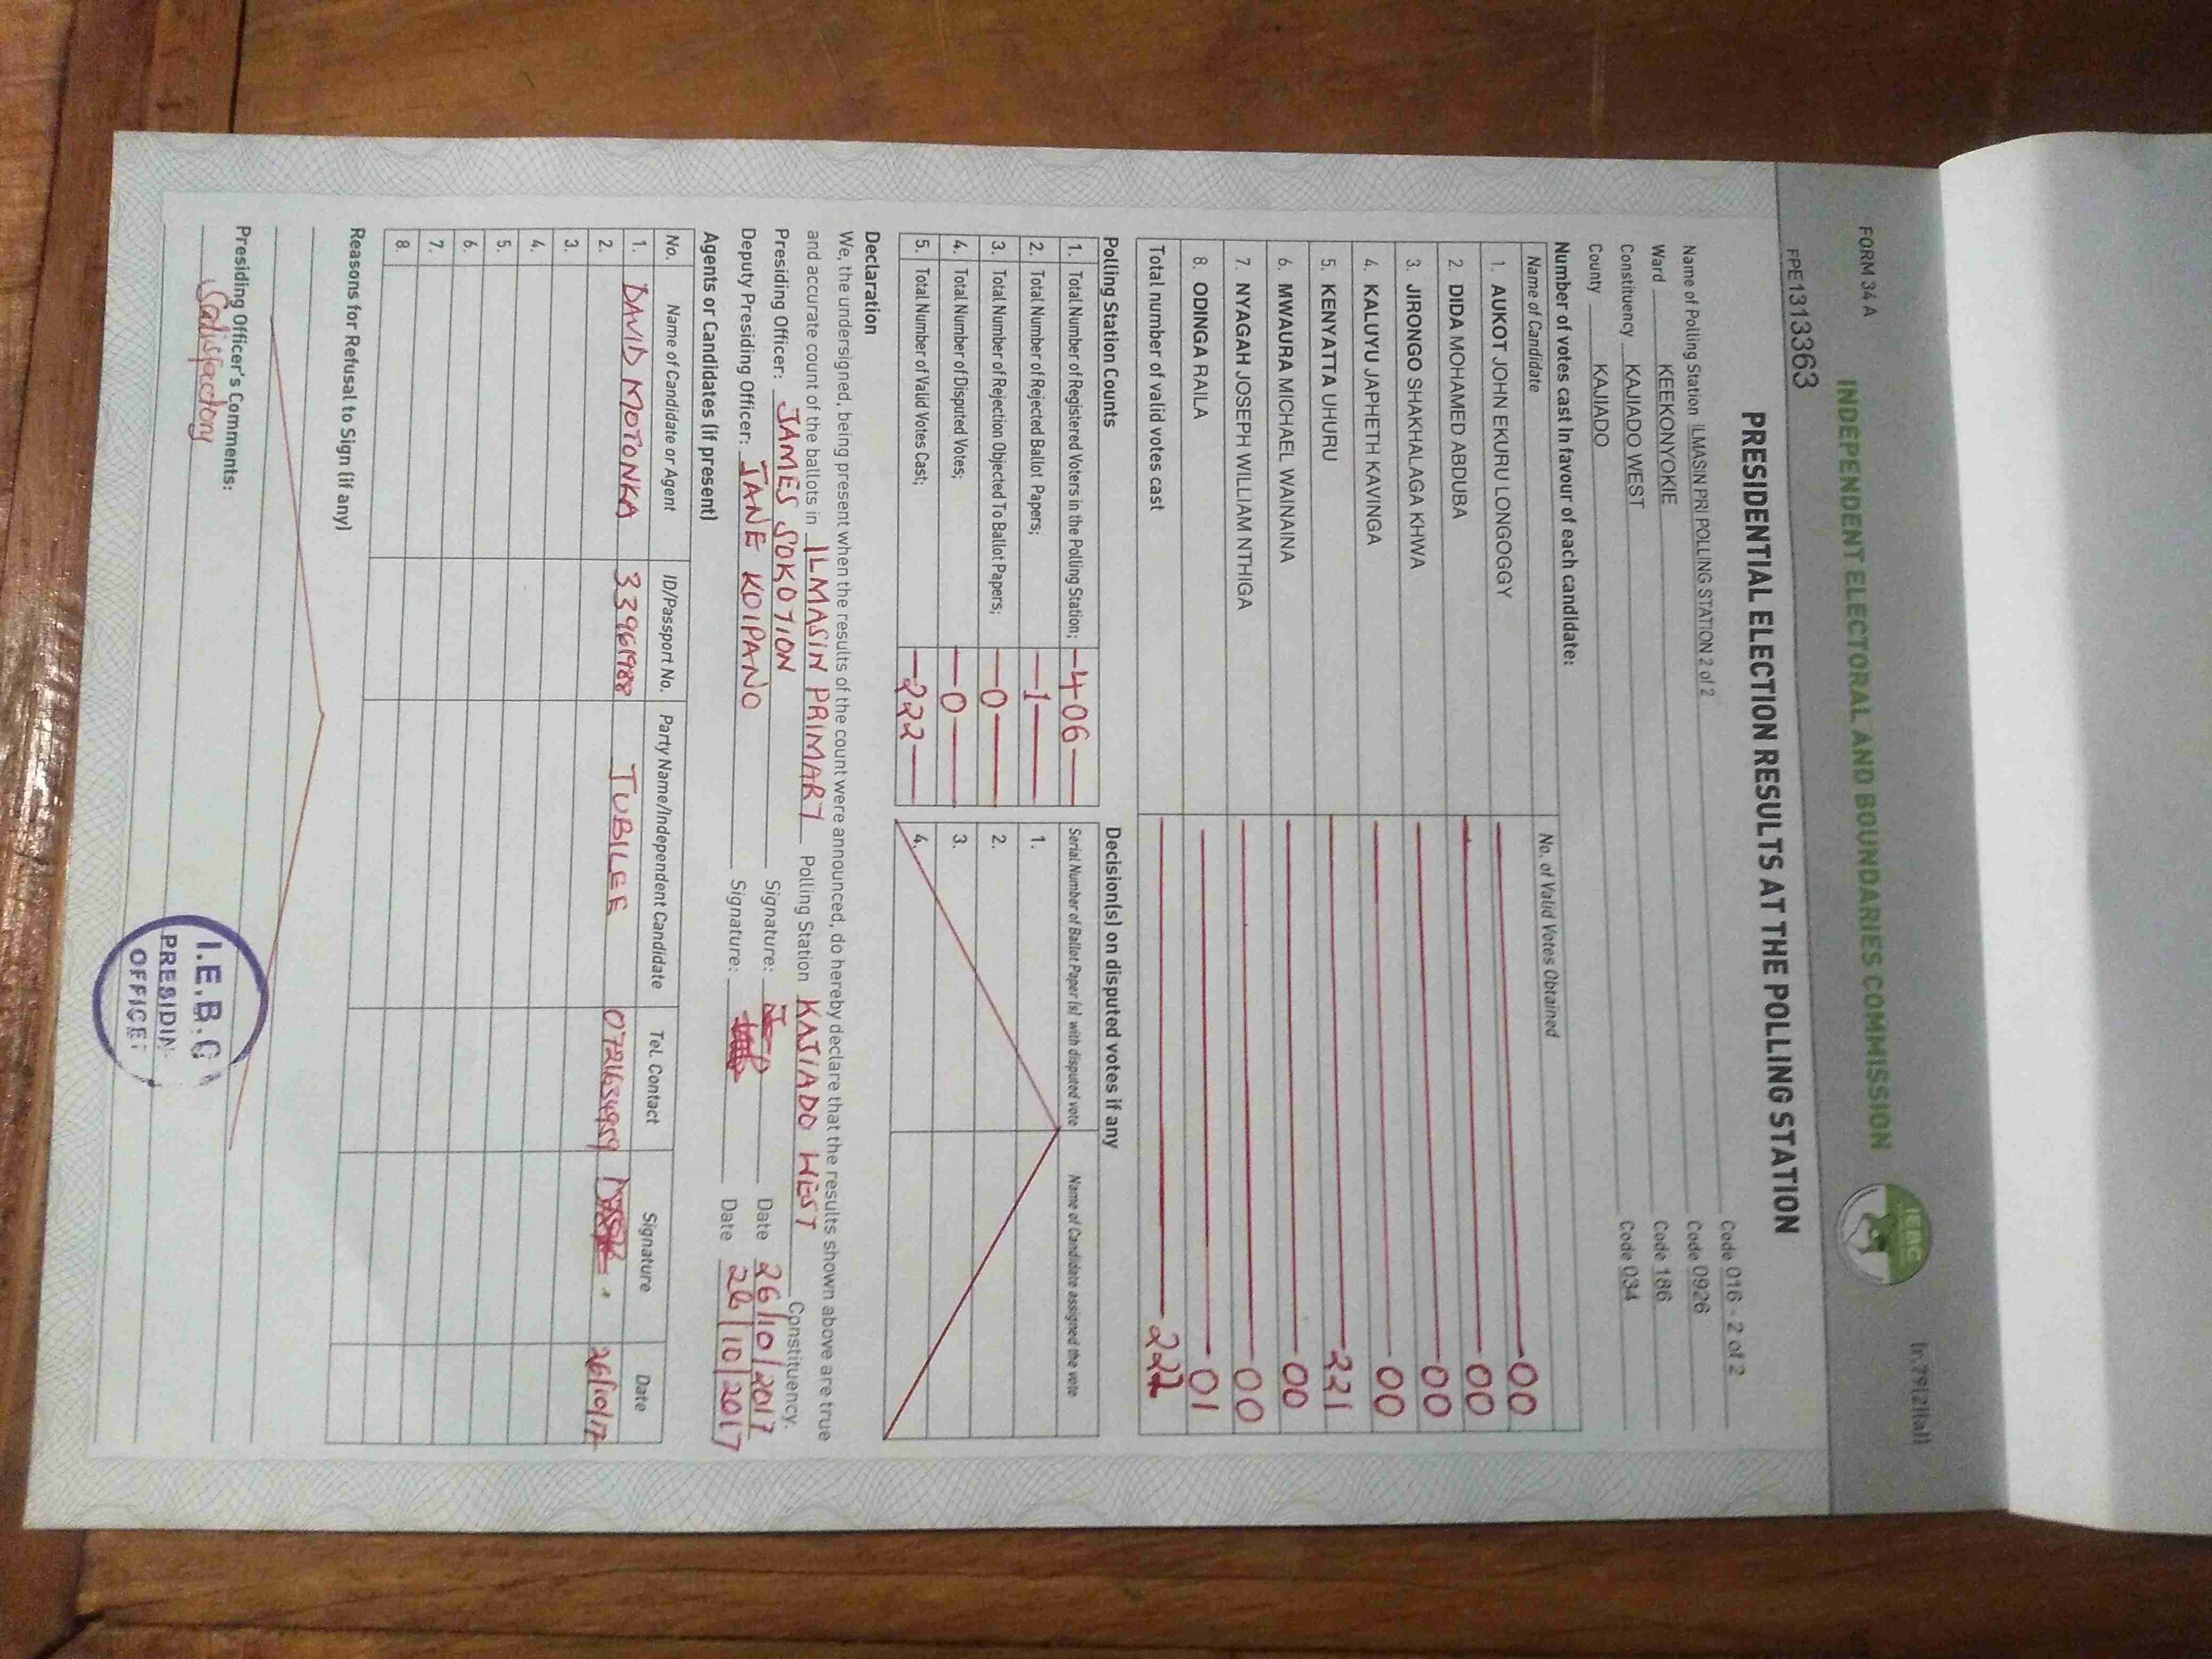 FORM 34 A
(r.79(2)(a))
INDEPENDENT ELECTORAL AND BOUNDARIES COMMISSION
IEBC
FPE1313363
PRESIDENTIAL ELECTION RESULTS AT THE POLLING STATION
Name of Polling Station ILMASIN PRI POLLING STATION 2 of 2 Code 016 - 2 of 2
Ward KEEKONYOKIE Code 0926
Constituency KAJIADO WEST Code 186
County KAJIADO Code 034
Number of votes cast in favour of each candidate:
Name of Candidate No. of Valid Votes Obtained
1. AUKOT JOHN EKURU LONGOGGY 00
2. DIDA MOHAMED ABDUBA 00
3. JIRONGO SHAKHALAGA KHWA 00
4. KALUYU JAPHETH KAVINGA 00
5. KENYATTA UHURU 221
6. MWAURA MICHAEL WAINAINA 00
7. NYAGAH JOSEPH WILLIAM NTHIGA 00
8. ODINGA RAILA 01
Total number of valid votes cast 222
Polling Station Counts
1. Total Number of Registered Voters in the Polling Station; 406
2. Total Number of Rejected Ballot Papers; 1
3. Total Number of Rejection Objected To Ballot Papers; 0
4. Total Number of Disputed Votes; 0
5. Total Number of Valid Votes Cast; 222
Decision(s) on disputed votes if any
Serial Number of Ballot Paper(s) with disputed vote Name of Candidate assigned the vote
1.
2.
3.
4.
Declaration
We, the undersigned, being present when the results of the count were announced, do hereby declare that the results shown above are true
and accurate count of the ballots in ILMASIN PRIMARY Polling Station KAJIADO WEST Constituency.
Presiding Officer: JAMES SOKOTION Signature: Date 26/10/2017
Deputy Presiding Officer: JANE KOIPANO Signature: Date 26/10/2017
Agents or Candidates (if present)
No. Name of Candidate or Agent ID/Passport No. Party Name/Independent Candidate Tel. Contact Signature Date
1. DAVID MOTONKA 33961988 JUBILEE 0721634959 26/10/17
2.
3.
4.
5.
6.
7.
8.
Reasons for Refusal to Sign (if any)
Presiding Officer's Comments:
Satisfactory
I.E.B.C
PRESIDIN
OFFICE